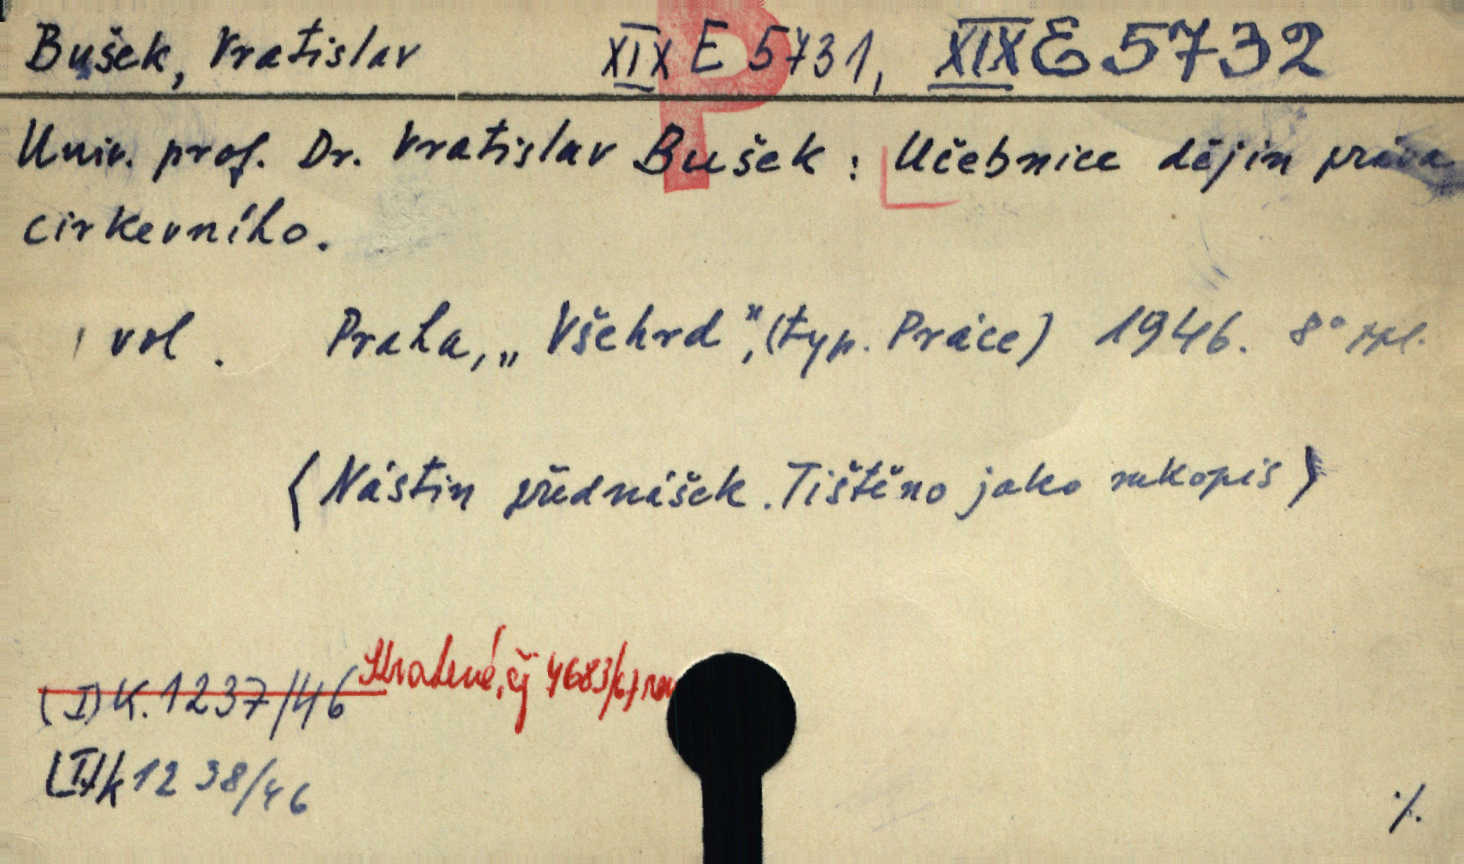 Bušek, Vratislav XIX E 5731, XIX E 5732
P
Univ. prof. Dr. Vratislav Bušek: Učebnice dějin práva
církevního.
1 vol. Praha, „Všehrd", (typ. Práce) 1946. 8°
(Nástin přednášek. Tištěno jako rukopis)
Ztracené, čj 4683/67 rev
(I) K. 1237/46
(I) k 1238/46
./.